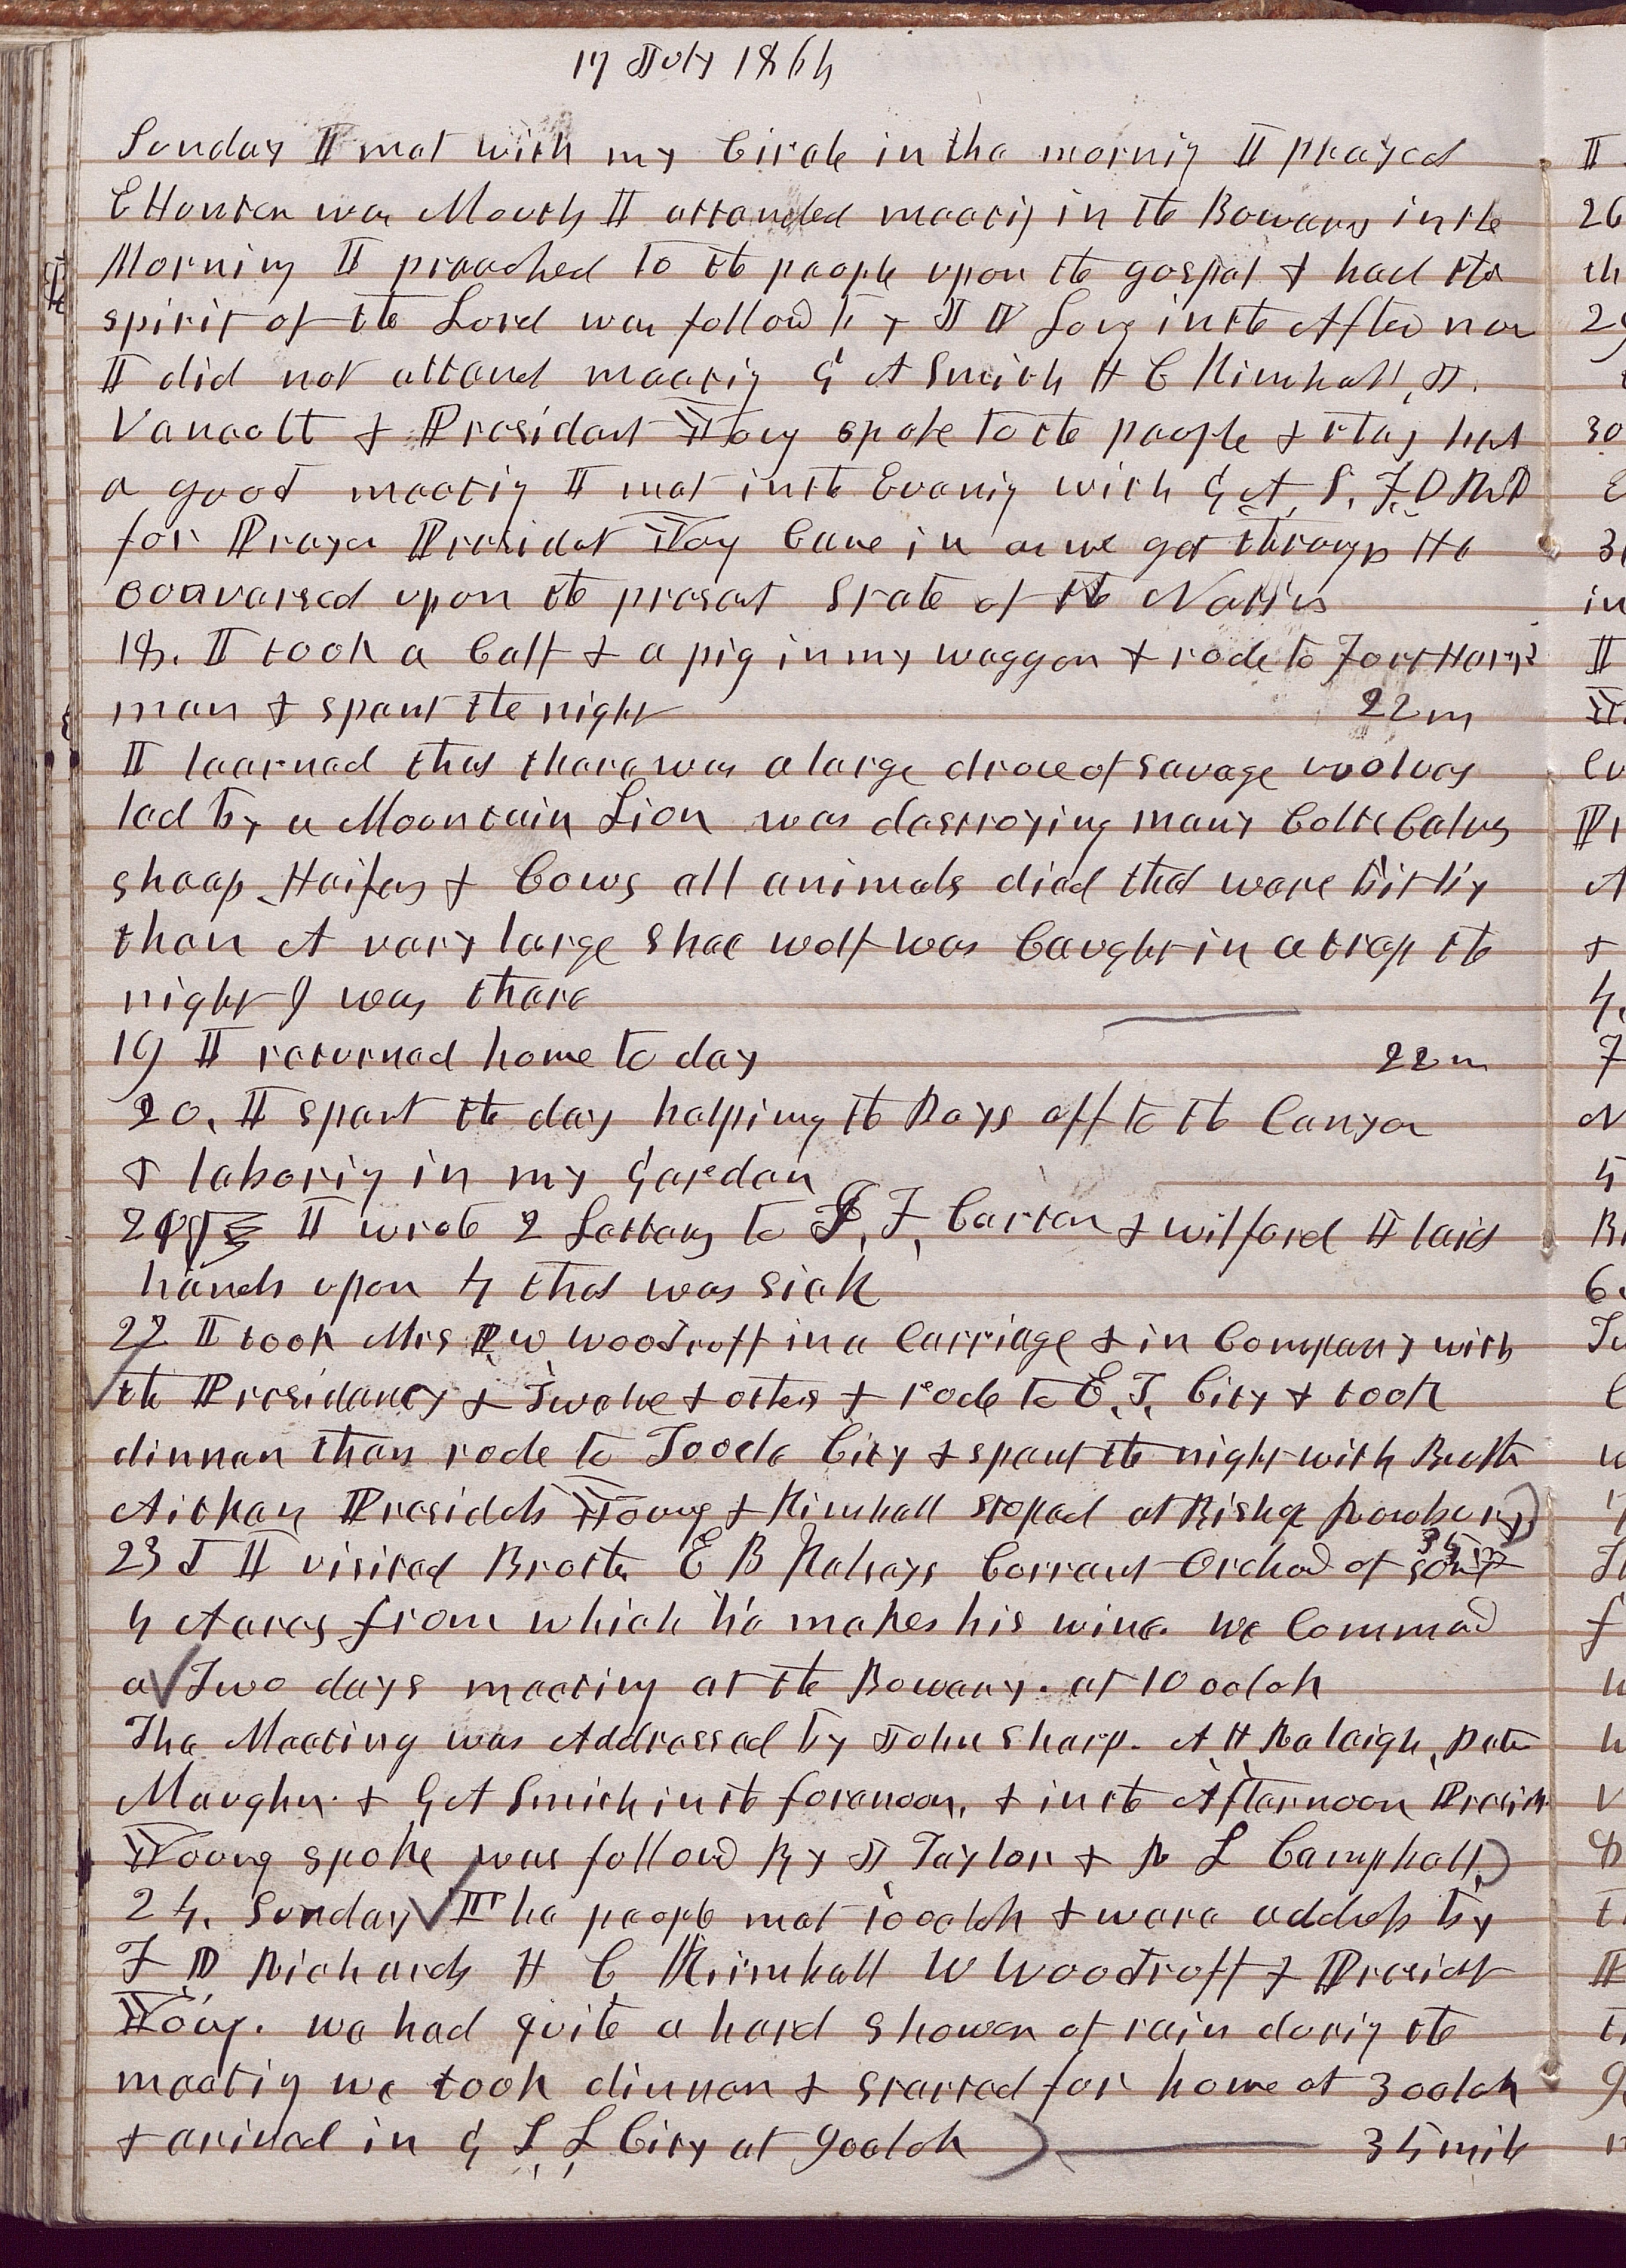 17 July 1864
Sunday I met with my Circle in the mornig I prayed
E Hunter was Mouth I attended meetig in the Bowery in the
Morning I preached to the people upon the gospel & had the
spirit of the Lord was followd by J V Long in the After noon
I did not attend meetig G A Smith H C Kimball, J.
Vancott & President Young spoke to the people & they had
a good meetig I met in the Evenig with G. A. S. F. D R
for Prayer President Young Came in as we got through He
conversed upon the present State of the Nation
18. I took a Calf & a pig in my waggon & rode to Fort Herri
man & spent the night 22 m
I learned that there was a large drove of savage woolves
led by a Mountain Lion was destroying many Colts Calves
sheep Heifers & Cows all animals died that were bit by
them A very large shee wolf was Caught in a trap the
night I was there
19 I returned home to day 22 m
20. I spent the day helping the Boys off to the Canyon
& laborig in my Garden
21 I wrote 2 Letters to F. Carter & wilford I laid
hands upon 4 that was sick
22 I took Mrs P. W Woodruff in a Carriage & in Company with
the Presidency & Twelve & others & rode to E. T. City & took
dinner then rode to Tooele City & spent the night with Broth
Aitken Presidets Young & Kimball stoped at Bishop Rowberrys)
23 I visited Brother E B Kelseys Currant Orchard of
4 Acres from which he makes his wine. We Commencd
a Two days meeting at the Bowery. at 10 oclok
The Meeting was Addressed by John Sharp. A H Raleigh, Peter
Maughn & G A Smith in the forenoon, & in the Afternoon Presidt
Young spoke was followd By J Taylor & R L Campbell)
24. Sunday The people met 10 oclok & were addressd by
F D Richards H C Kimball W Woodruff & Presidet
Young. we had quite a hard shower of rain durig the
meetig we took dinner & started for home at 3 oclok
& arived in G S L City at 9 oclok) 35 mile